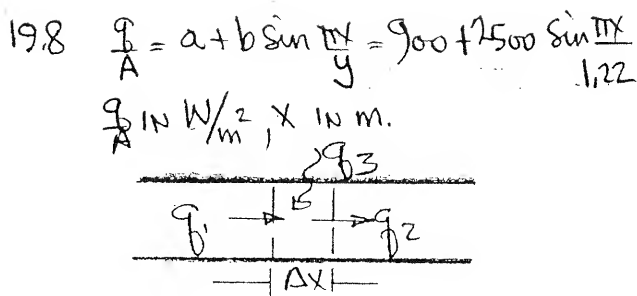 19.8 q/A = a + b sin πx/y = 900 + 2500 sin πx/1.22
q/A IN W/m², X IN m.
q3
q1 q2
ΔX